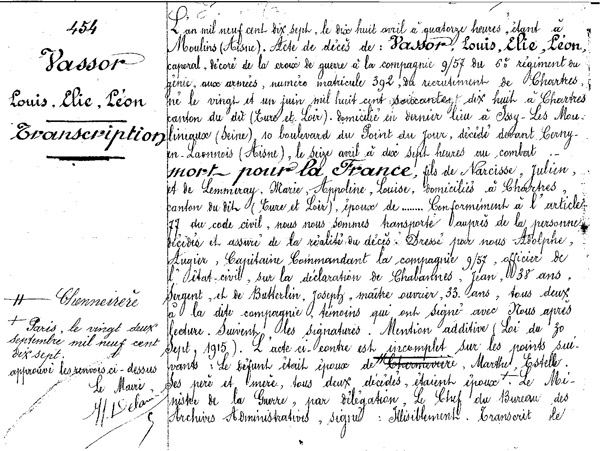 454
Vassor
Louis, Elie, Léon
Transcription
L'an mil neuf cent dix sept, le dix huit avril à quatorze heures, étant à
Moulins (Aisne). Acte de décès de : Vassor, Louis, Elie, Léon,
caporal, décoré de la croix de guerre à la compagnie 9/57 du 6e régiment du
génie, aux armées, numéro matricule 392, du recrutement de Chartres,
né le vingt et un juin mil huit cent soixante, dix huit à Chartres
canton du dit (Eure et Loir), domicilié en dernier lieu à Issy-Les Mou-
lineaux (Seine), 10 boulevard du Point du Jour, décédé devant Cerny-
en-Laonnois (Aisne), le seize avril à dix sept heures au combat
mort pour la France, fils de Narcisse, Julien,
et de Lemmeray, Marie, Appoline, Louise, domiciliés à Chartres,
canton du dit (Eure et Loir), époux de ........ Conformément à l'article
77 du code civil, nous nous sommes transporté auprès de la personne
décédée et assuré de la réalité du décès. Dressé par nous Adolphe,
Augier, Capitaine Commandant la compagnie 9/57, officier de
l'état-civil, sur la déclaration de Chabannes, Jean, 38 ans,
Sergent, et de Butterlin, Joseph, maître ouvrier, 33 ans, tous deux
à la dite compagnie, témoins qui ont signé avec Nous après
lecture. Suivent les signatures. Mention additive (Loi du 30
Sept. 1915). L'acte ci-contre est incomplet sur les points sui-
vants : Le défunt était époux de Marthe, Estelle.
Ses père et mère, tous deux décédés, étaient époux +. Le Mi-
nistre de la Guerre, par délégation, Le Chef du Bureau des
Archives Administratives, signé : Illisiblement. Transcrit le
+ Paris, le vingt deux
septembre mil neuf cent
dix sept.
approuvé les renvois ci-dessus
Le Maire